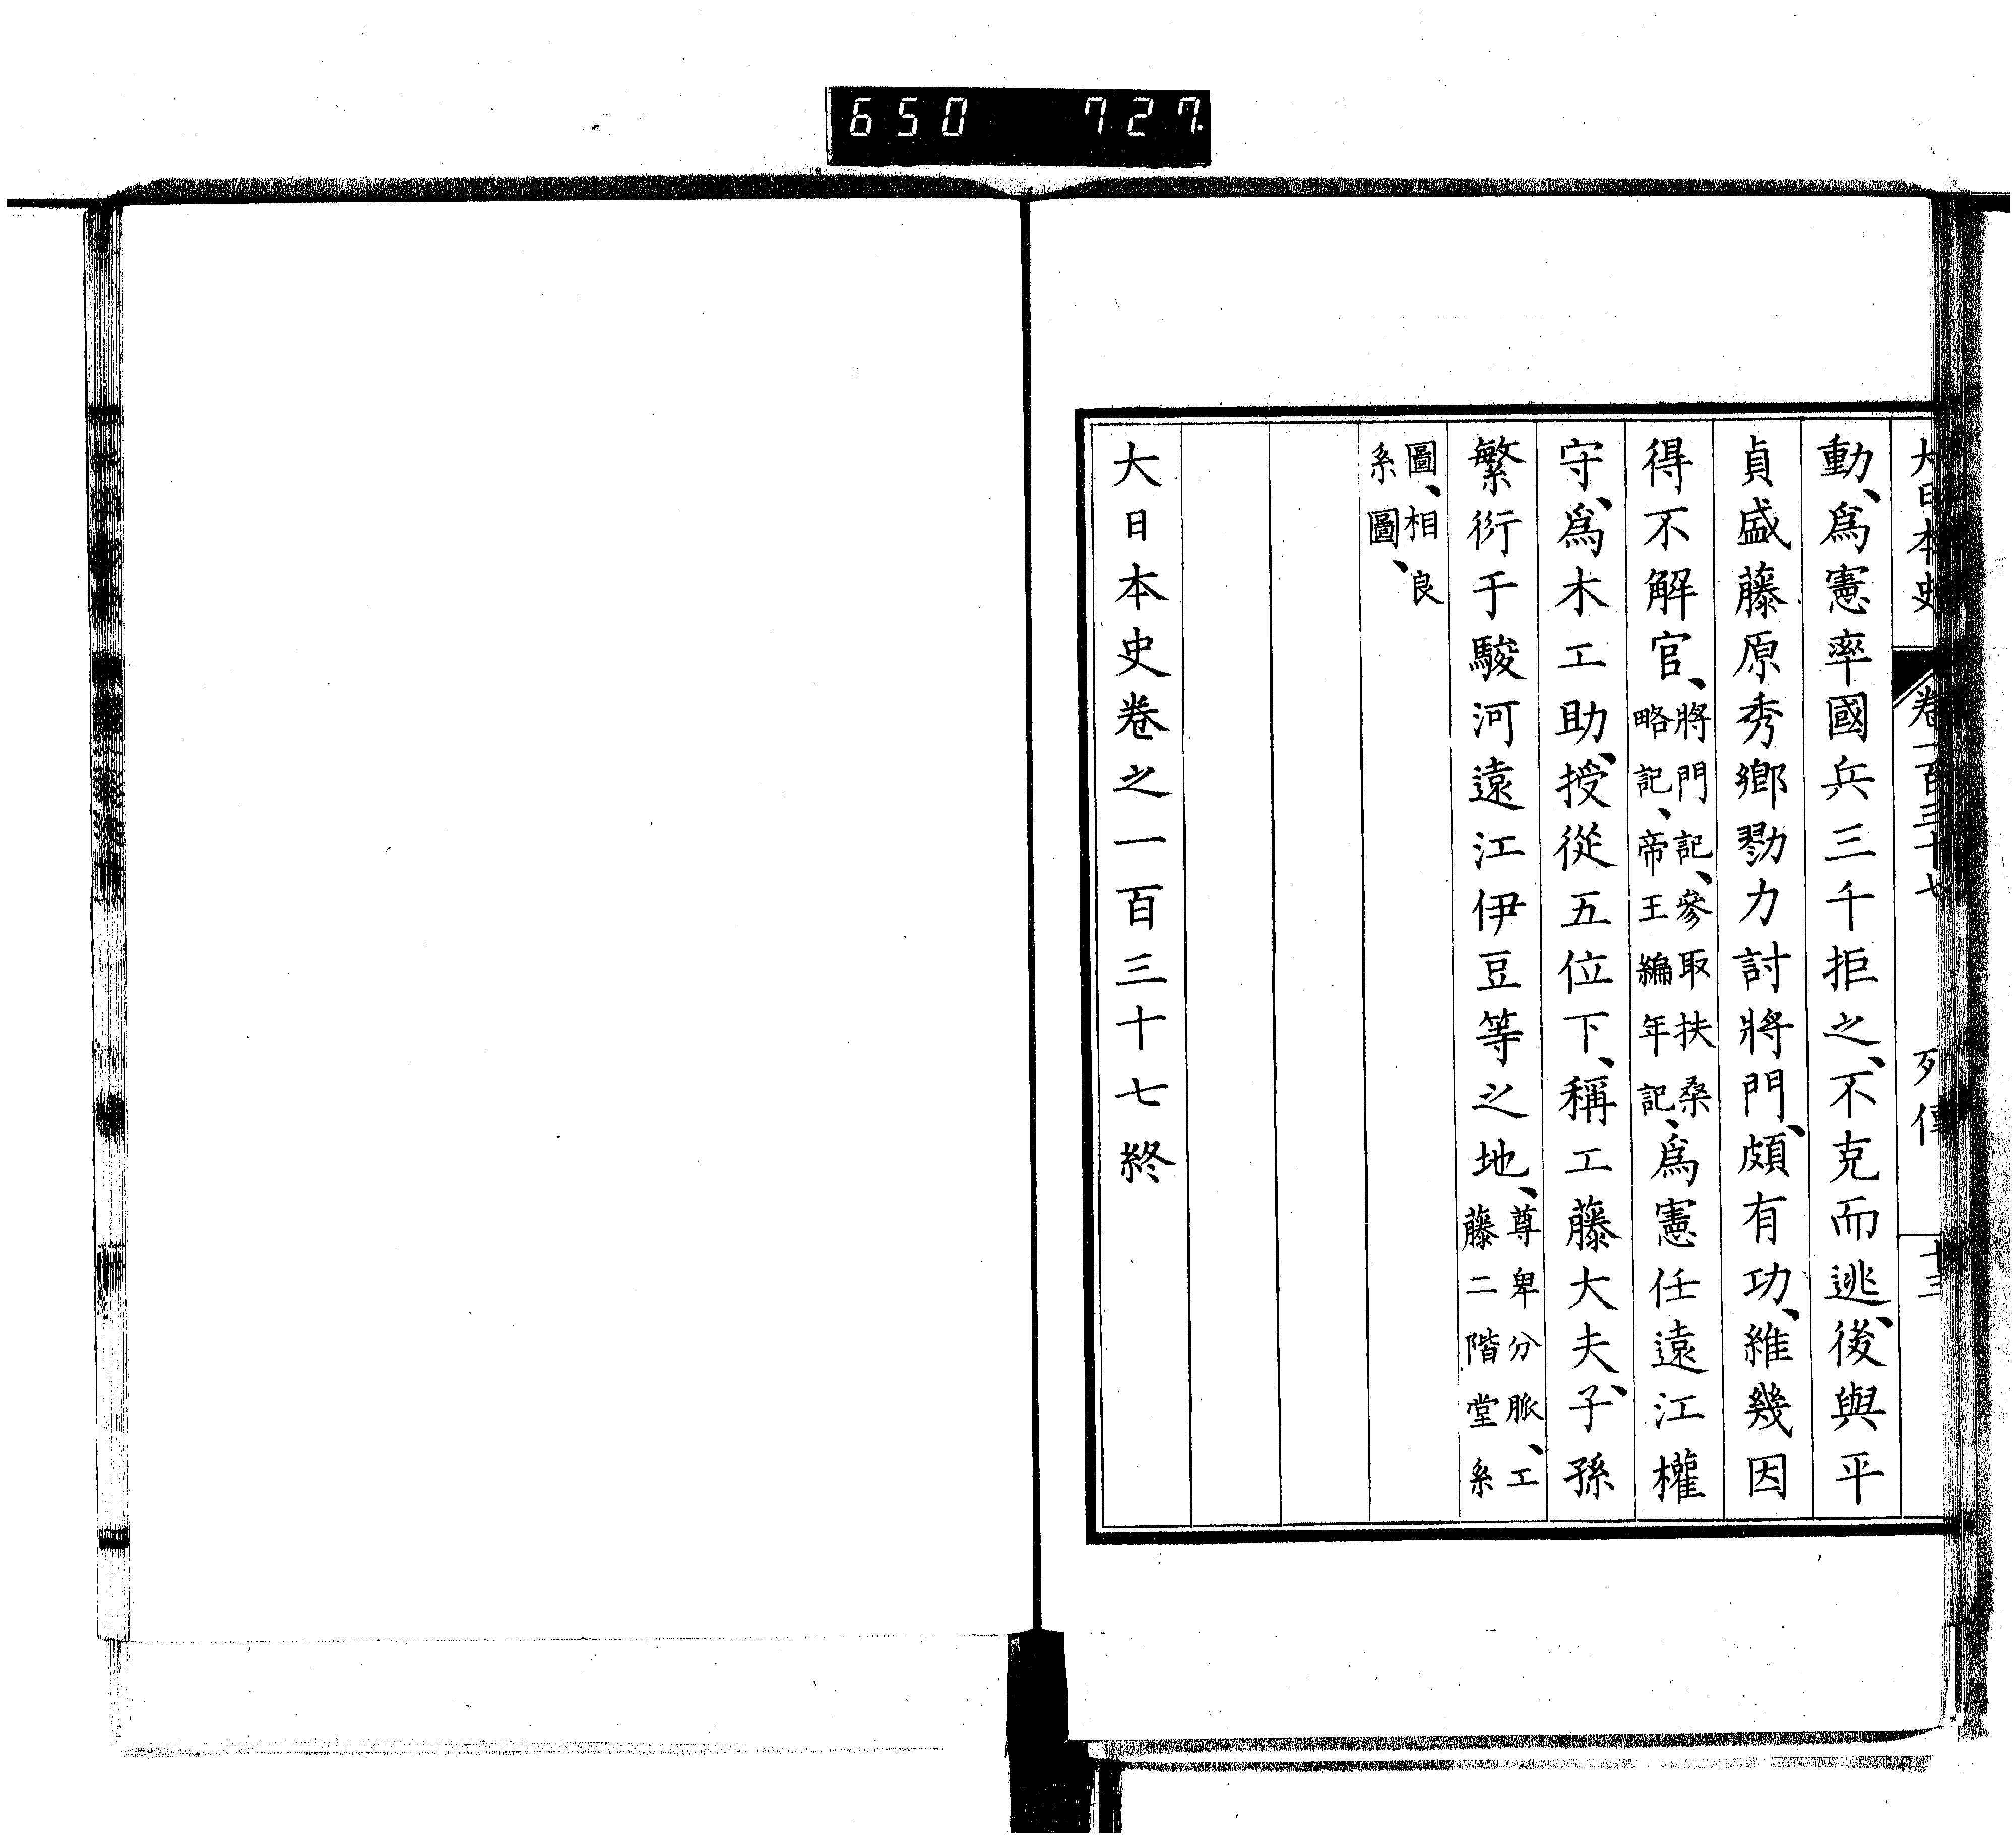 650 727
大日本史 卷一百三十七 列傳 十三
動、爲憲率國兵三千拒之、不克而逃、後與平
貞盛藤原秀鄉勠力討將門、頗有功、維幾因
得不解官、將門記、參取扶桑略記、帝王編年記、爲憲任遠江權
守、爲木工助、授從五位下、稱工藤大夫、子孫
繁衍于駿河遠江伊豆等之地、尊卑分脈、工藤二階堂系
圖、相良系圖、
大日本史卷之一百三十七終